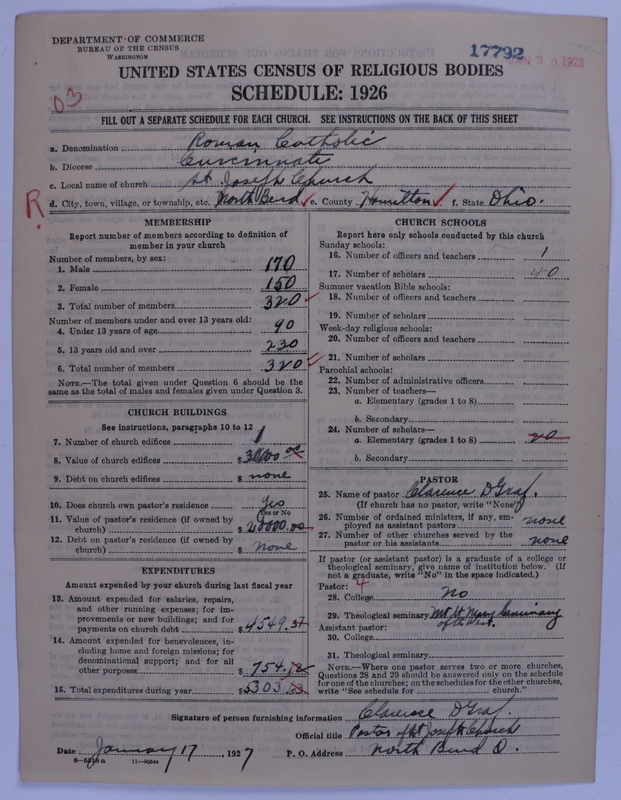 DEPARTMENT OF COMMERCE
BUREAU OF THE CENSUS
WASHINGTON
17792
JAN 30 1928
UNITED STATES CENSUS OF RELIGIOUS BODIES
SCHEDULE: 1926
03
FILL OUT A SEPARATE SCHEDULE FOR EACH CHURCH. SEE INSTRUCTIONS ON THE BACK OF THIS SHEET
a. Denomination Roman Catholic
b. Diocese Cincinnati
c. Local name of church St Joseph Church
R d. City, town, village, or township, etc. North Bend e. County Hamilton f. State Ohio.
MEMBERSHIP
Report number of members according to definition of
member in your church
Number of members, by sex:
1. Male 170
2. Female 150
3. Total number of members 320
Number of members under and over 13 years old:
4. Under 13 years of age 90
5. 13 years old and over 230
6. Total number of members 320
NOTE.—The total given under Question 6 should be
the same as the total of males and females given under Question 3.
CHURCH BUILDINGS
See instructions, paragraphs 10 to 12
7. Number of church edifices 1
8. Value of church edifices $
9. Debt on church edifices $ none
10. Does church own pastor's residence yes
Yes or No
11. Value of pastor's residence (if owned by
church) $
12. Debt on pastor's residence (if owned by
church) $ none
EXPENDITURES
Amount expended by your church during last fiscal year
13. Amount expended for salaries, repairs,
and other running expenses; for im-
provements or new buildings; and for
payments on church debt $ 4549.
14. Amount expended for benevolences, in-
cluding home and foreign missions; for
denominational support; and for all
other purposes $ 754.
15. Total expenditures during year $ 5303.
CHURCH SCHOOLS
Report here only schools conducted by this church
Sunday schools:
16. Number of officers and teachers 1
17. Number of scholars 40
Summer vacation Bible schools:
18. Number of officers and teachers
19. Number of scholars
Week-day religious schools:
20. Number of officers and teachers
21. Number of scholars
Parochial schools:
22. Number of administrative officers
23. Number of teachers—
a. Elementary (grades 1 to 8)
b. Secondary
24. Number of scholars—
a. Elementary (grades 1 to 8)
b. Secondary
PASTOR
25. Name of pastor Clarence D Graf.
(If church has no pastor, write "None")
26. Number of ordained ministers, if any, em-
ployed as assistant pastors none
27. Number of other churches served by the
pastor or his assistants none
If pastor (or assistant pastor) is a graduate of a college or
theological seminary, give name of institution below. (If
not a graduate, write "No" in the space indicated.)
Pastor: 4
28. College No
29. Theological seminary Mt St Mary Seminary
of the West.
Assistant pastor:
30. College
31. Theological seminary
NOTE.—Where one pastor serves two or more churches,
Questions 28 and 29 should be answered only on the schedule
for one of the churches; on the schedules for the other churches,
write "See schedule for church."
Signature of person furnishing information Clarence D Graf.
Official title Pastor of St Joseph Church
Date January 17, 1927 P. O. Address North Bend O.
8—5518a 11—9054a